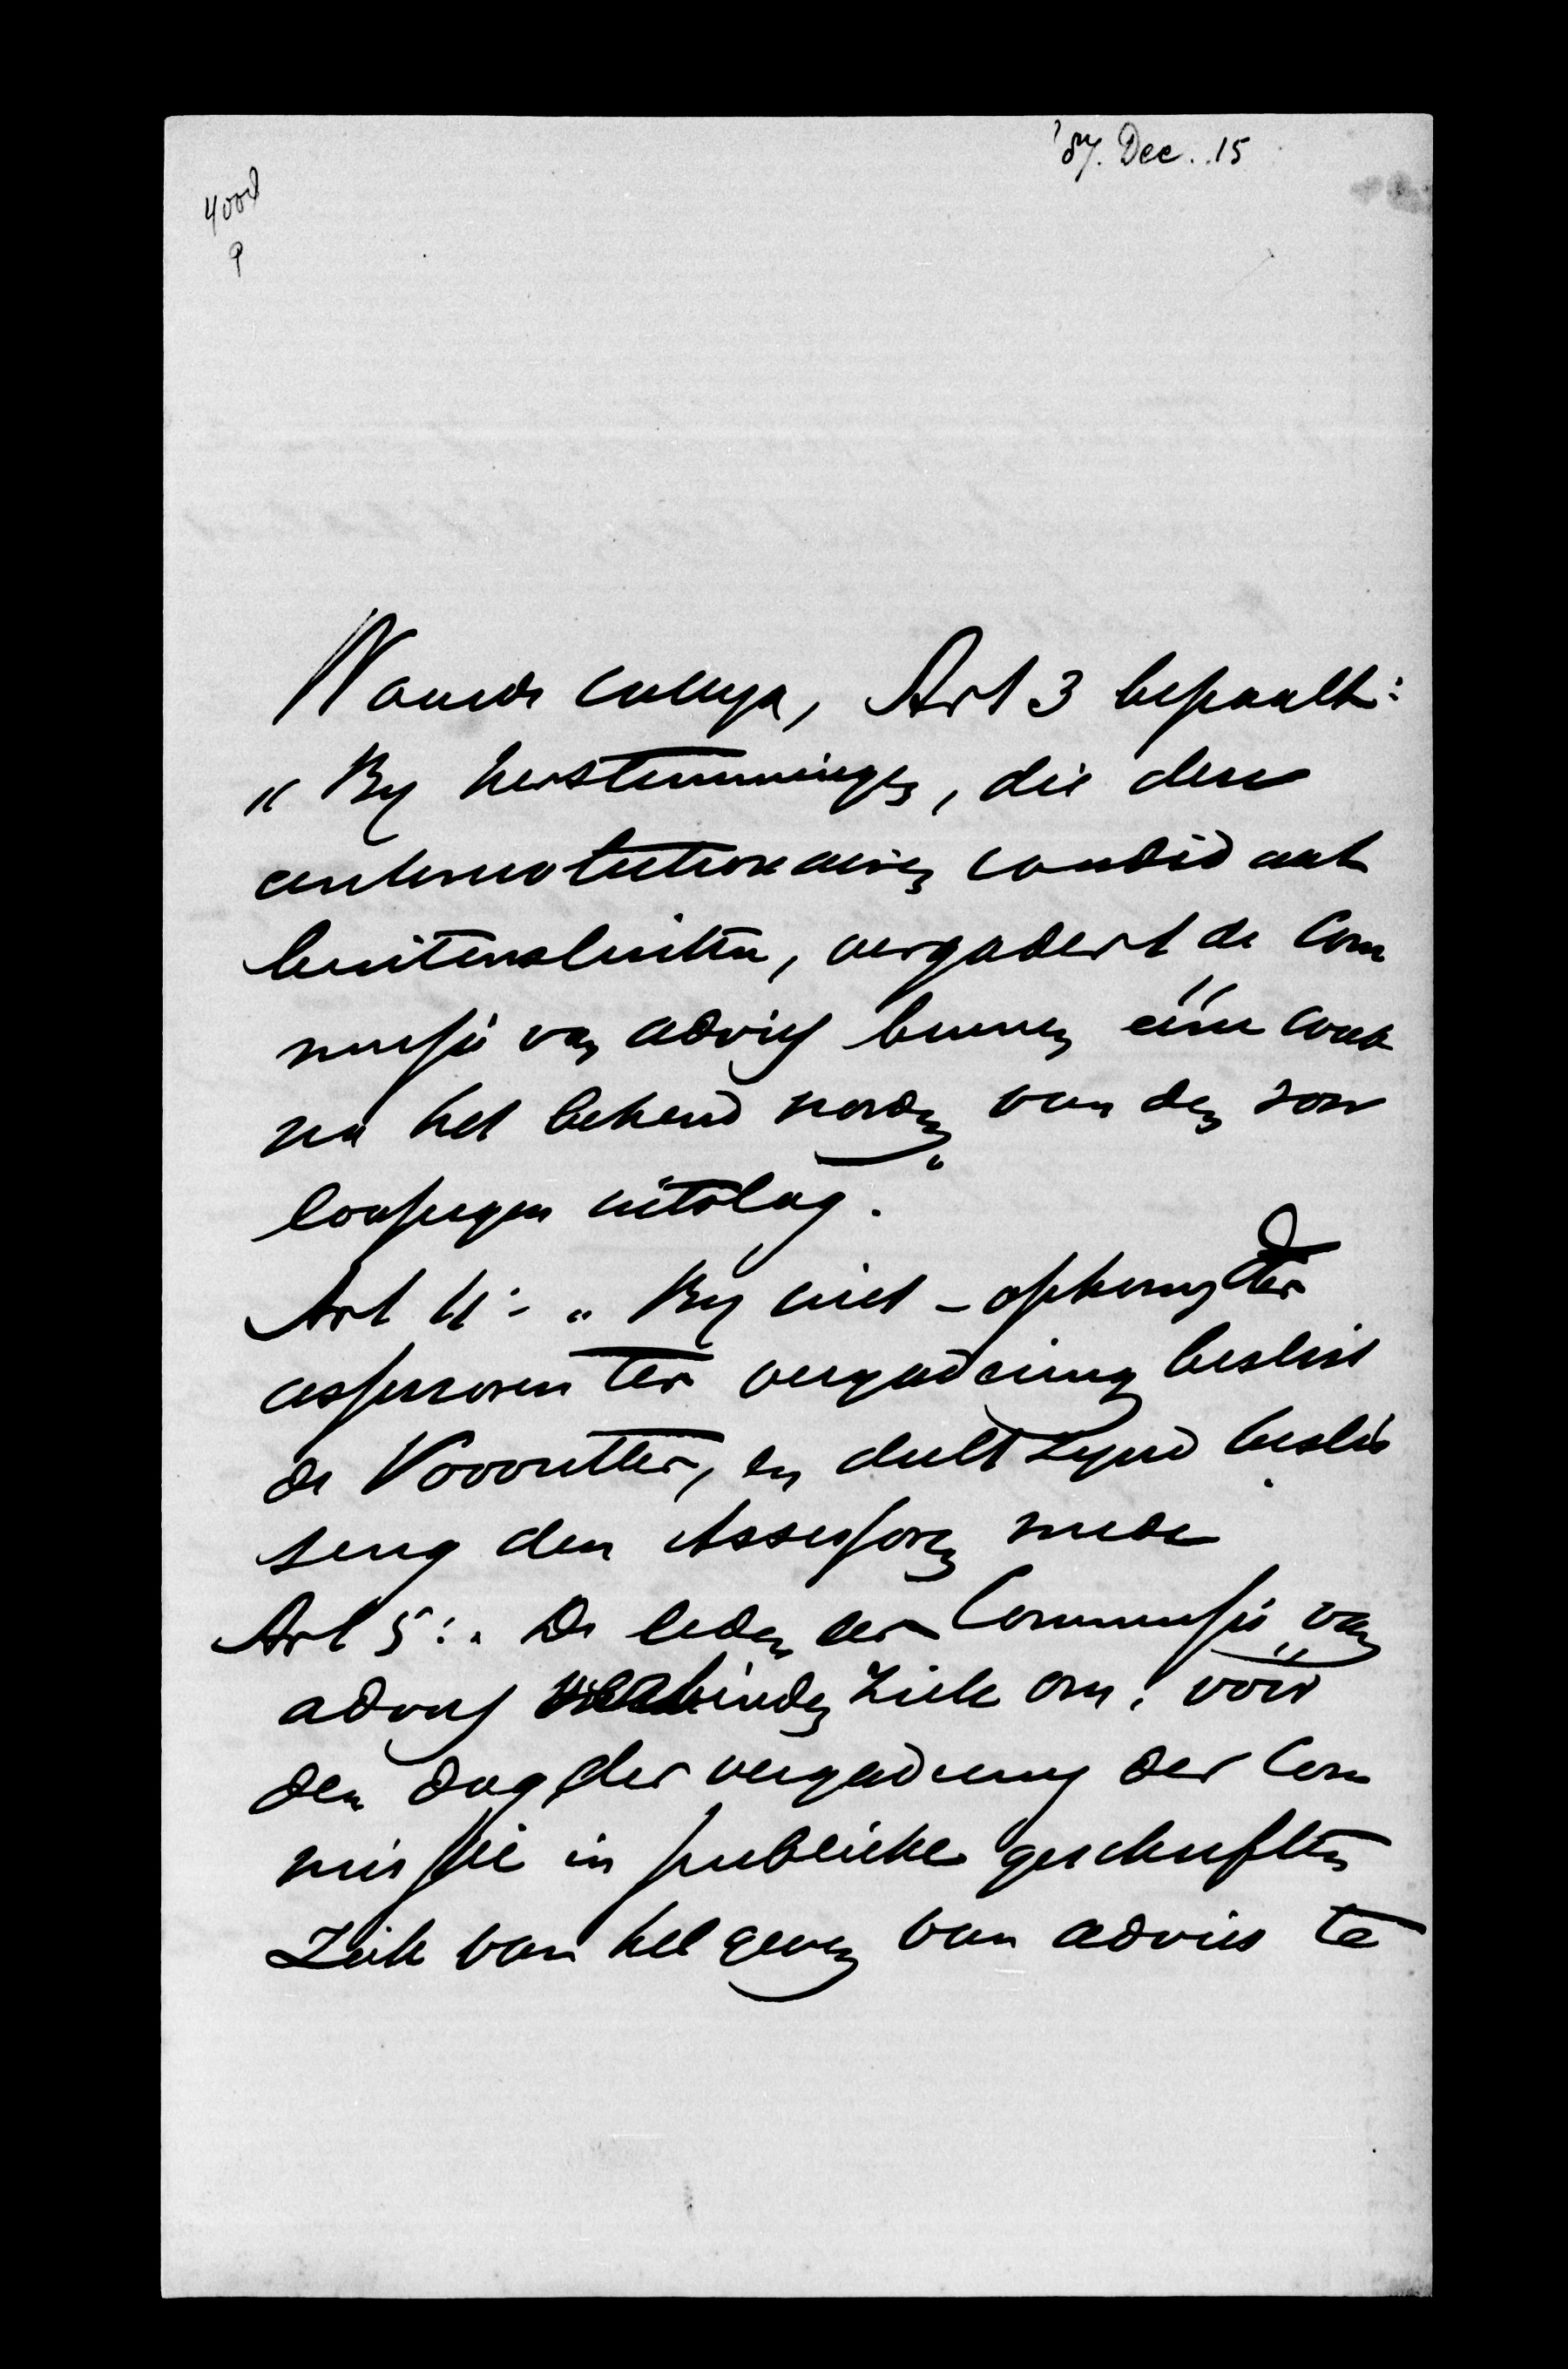 '87. Dec. 15
4008
9
Waarde collega, Art 3 bepaalt:
" By herstemmingen, die den
antirevolutionairen candidaat
buitensluiten, vergadert de Com
missie van advies binnen ééne week
na het bekend worden van den voor
loopigen uitslag."
Art 4: " By niet-opkomst der
assessoren ter vergadering beslist
de Voorzitter, en deelt zijne beslis
sing den Assessoren mede
Art 5: " De leden der Commissie van
advies verbinden zich om, vóór
den dag der vergadering der Com
missie in publieke geschriften
zich van het geven van advies te